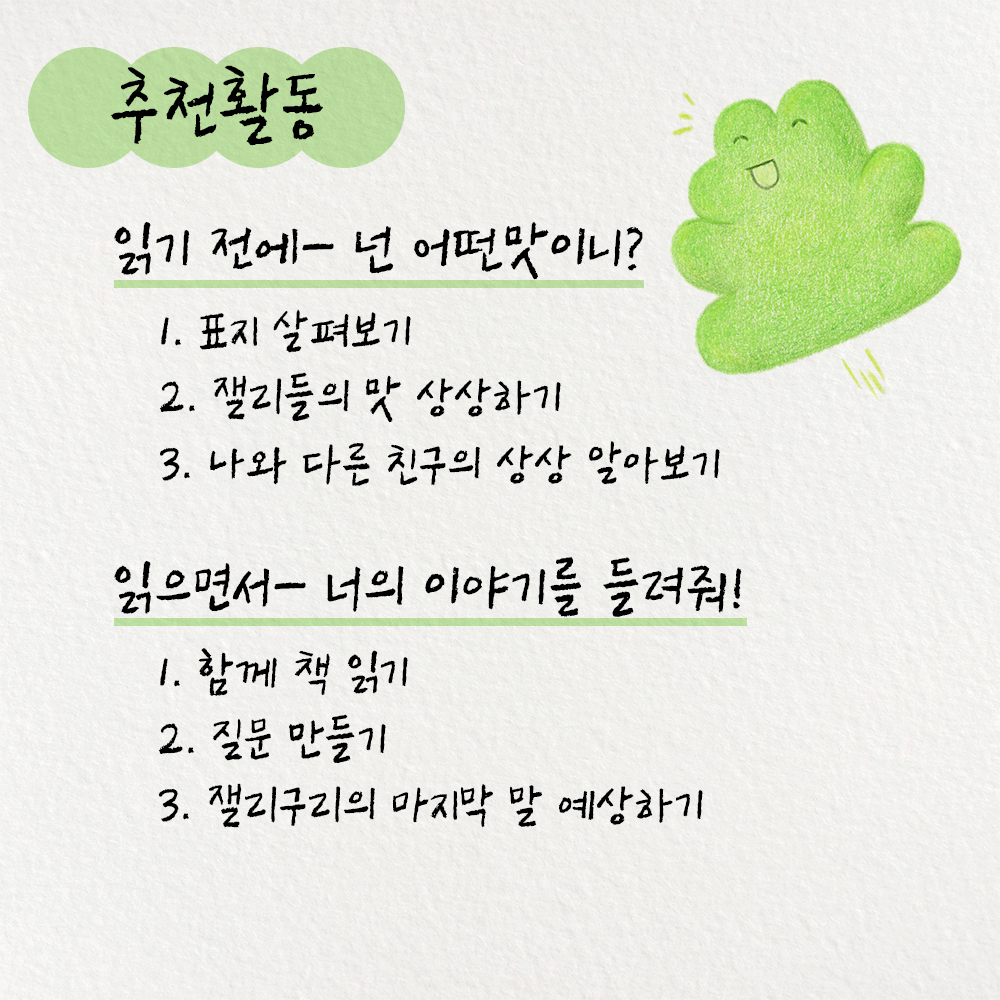 추천활동
읽기 전에- 넌 어떤맛이니?
1. 표지 살펴보기
2. 잴리들의 맛 상상하기
3. 나와 다른 친구의 상상 알아보기
읽으면서- 너의 이야기를 들려줘!
1. 함께 책 읽기
2. 질문 만들기
3. 잴리구리의 마지막 말 예상하기